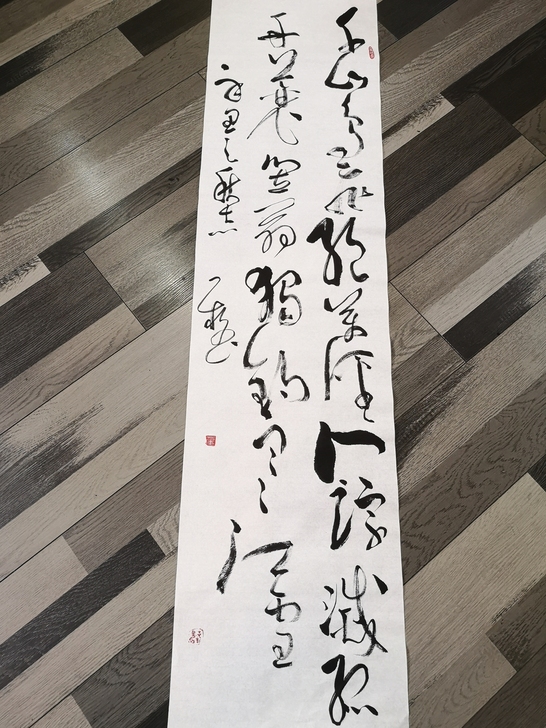 千山鳥飛絕萬徑人踪滅孤
舟蓑笠翁獨釣寒江雪
之秋